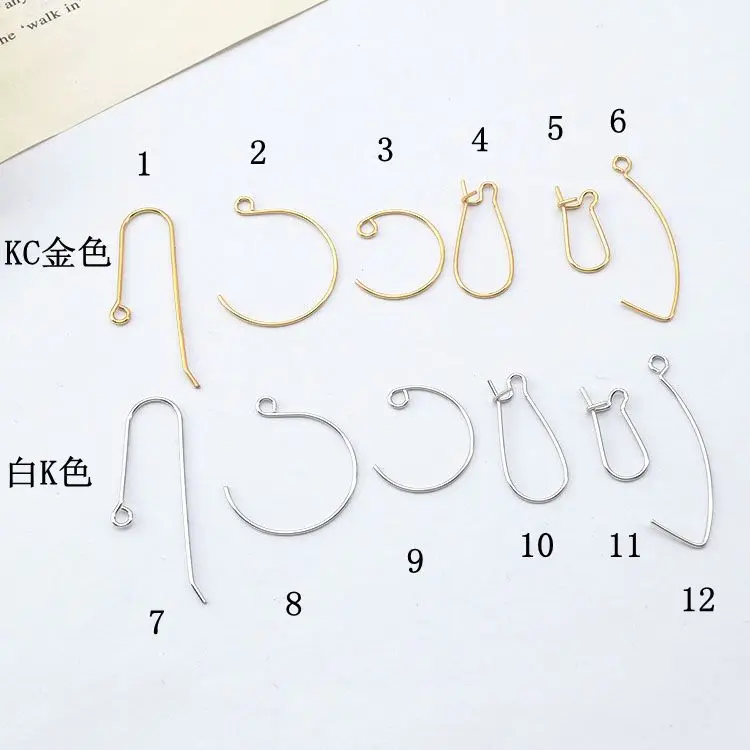 he 'walk in'
1 2 3 4 5 6
KC金色
白K色
7 8 9 10 11 12